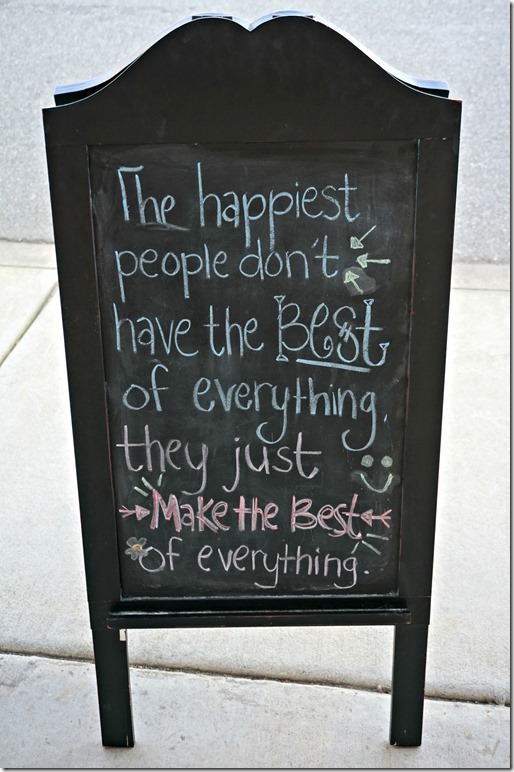 The happiest
people don't
have the Best
of everything,
they just
Make the Best
of everything.